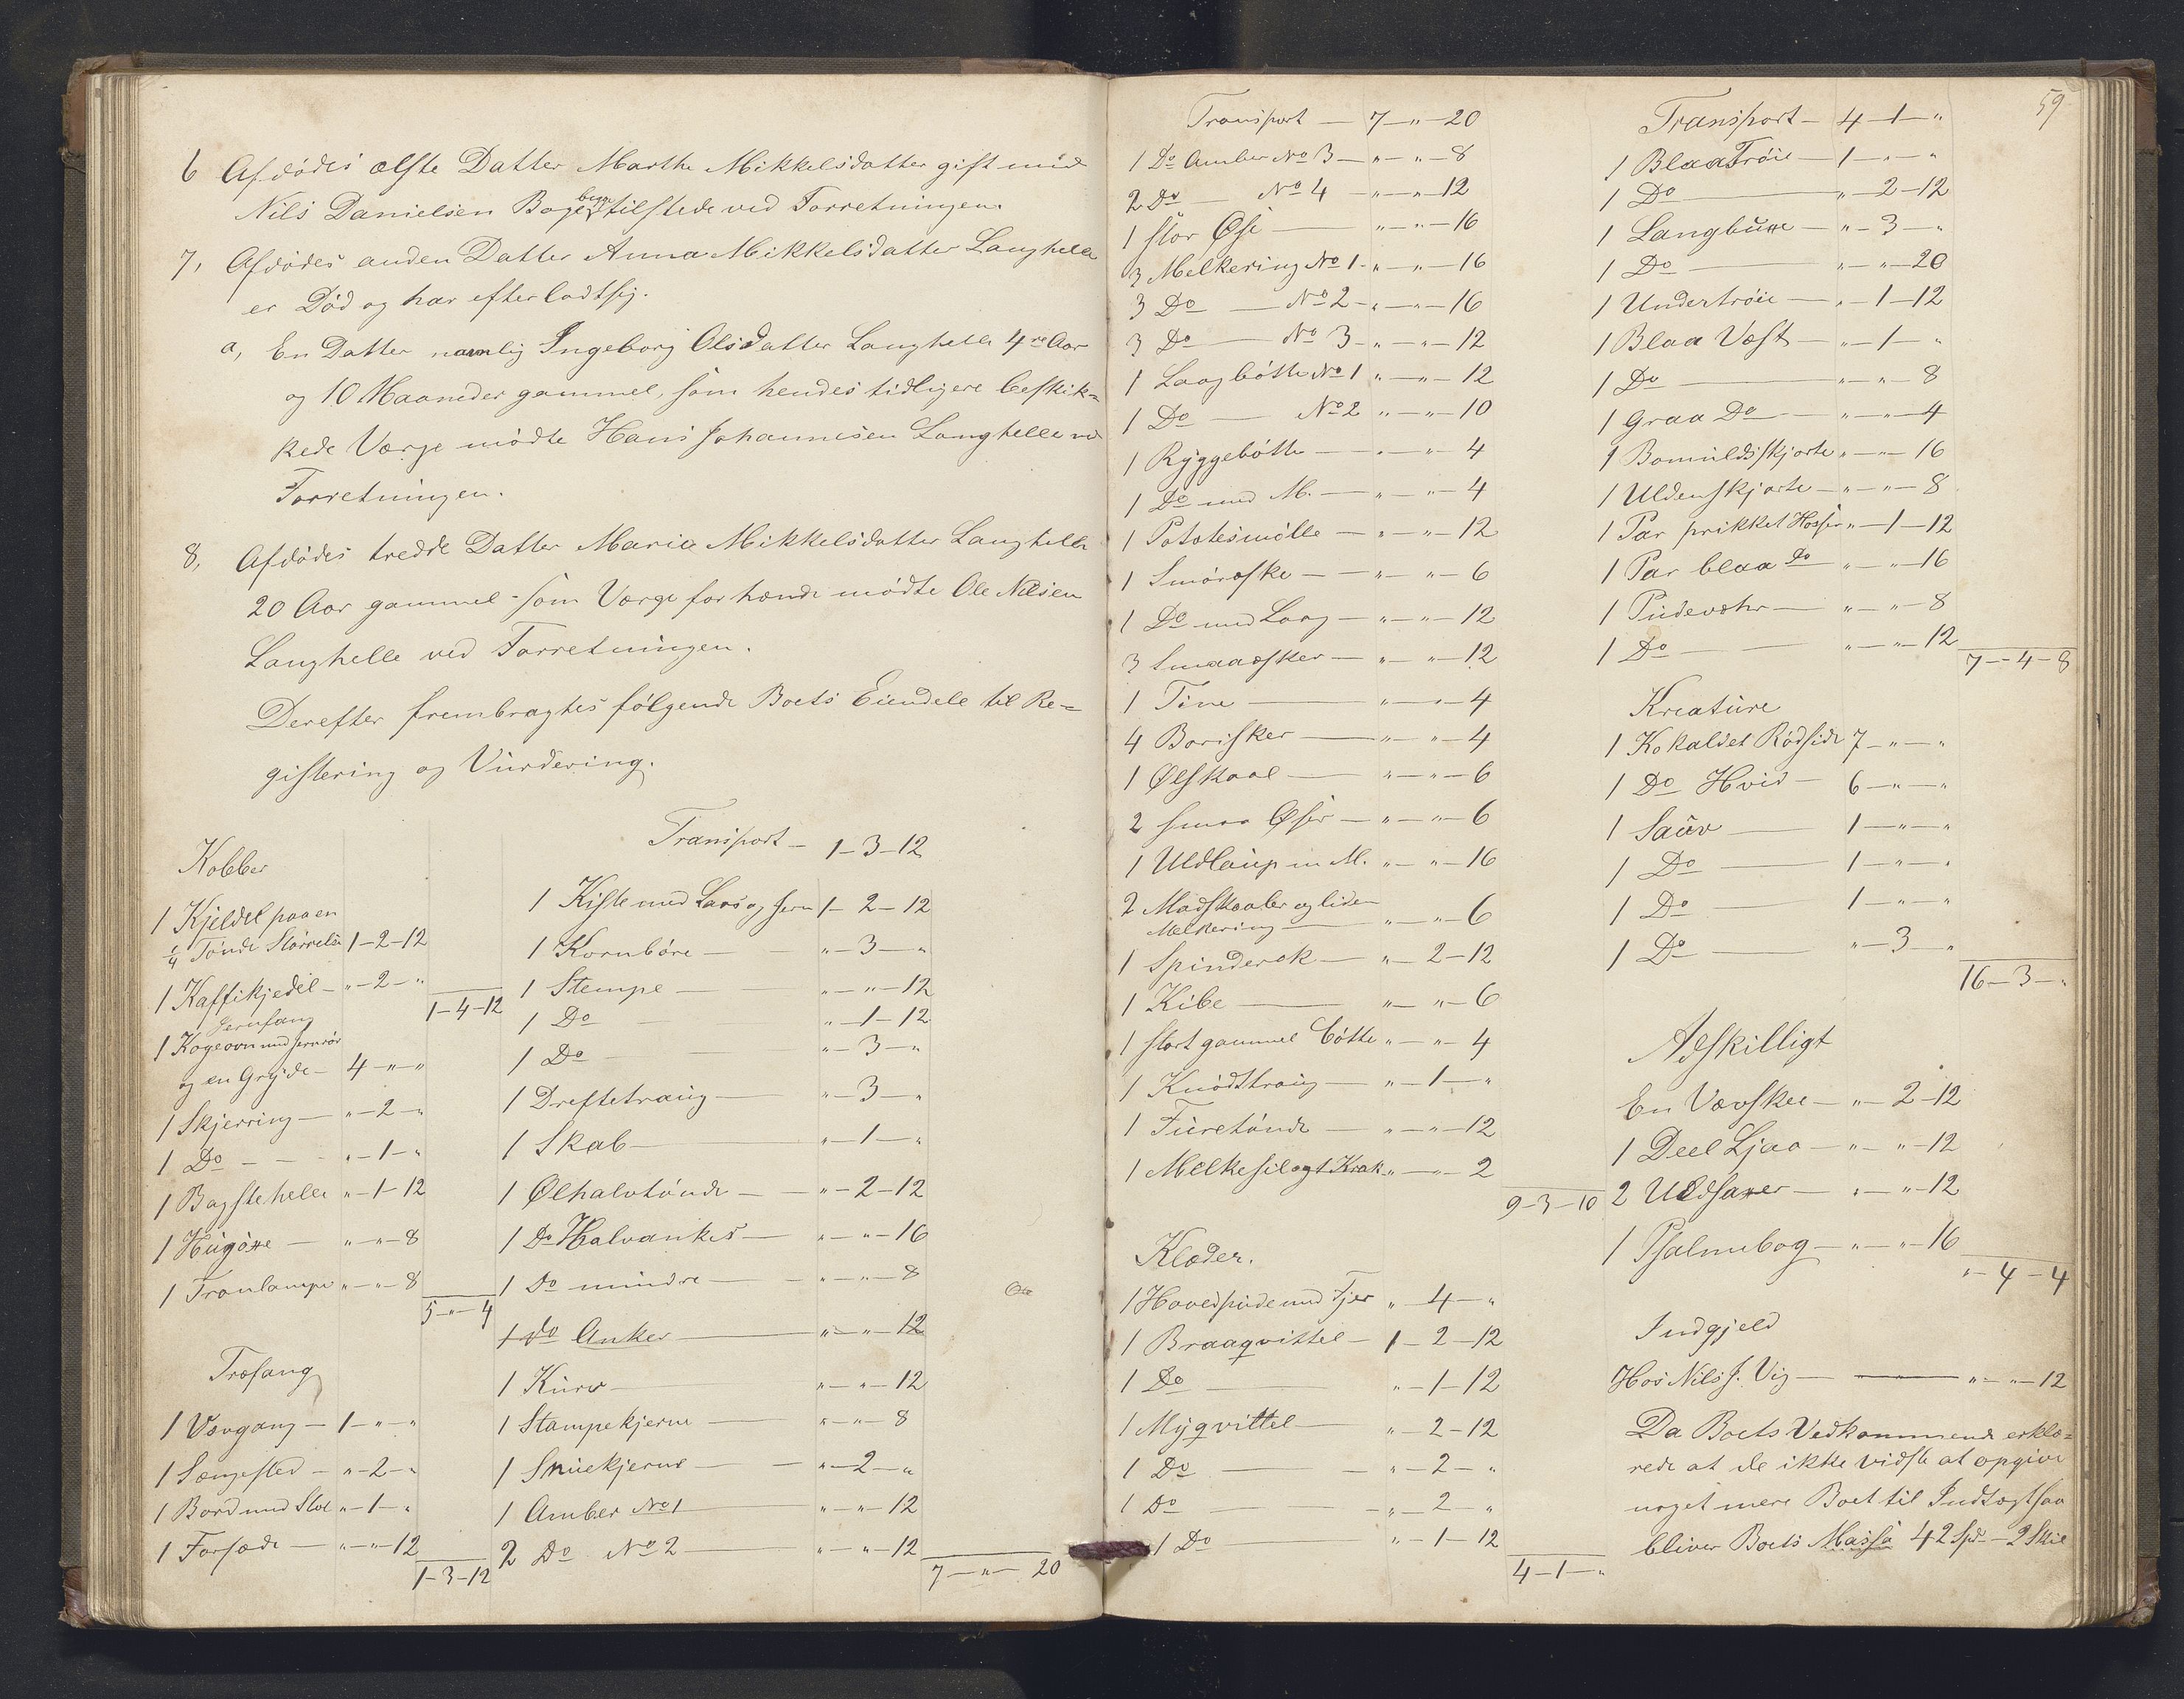 6 Afdødes ælste Datter Marthe Mikkelsdatter gift med
Nils Danielsen Boge begge tilstede ved Forretningen.
7, Afdødes anden Datter Anna Mikkelsdatter Langhelle
er Død og har efterladt sig.
a, En Datter navnlig Ingeborg Olsdatter Langhelle 4re Aar
og 10 Maaneder gammel, som hendes tidligere beskik=
kede Værge mødte Hans Johannesen Langhelle ved
Forretningen.
8, Afdødes tredde Datter Maria Mikkelsdatter Langhelle
20 Aar gammel som Værge for hende mødte Ole Nilsen
Langhelle ved Forretningen.
Derefter frembragtes følgende Boets Eiendele til Re=
gistering og Vurdering.
Kobber
1 Kjeldel paa en
1/4 Tønde Størrelse 1-2-12
1 Kaffikjedel - " -2- "
1-4-12
Jernfang
1 Kogeovn med Jernrør
og en Gryde - 4 - " - "
1 Skjerring - " -2- "
1 Do - " -1- "
1 Bagstehelle " -1-12
1 Hugøxe - " - " -8
1 Tranlampe " - " -8
5 - " - 4
Træfang
1 Vævgang - 1 - " - "
1 Sængested - " -2- "
1 Bord med Stol " -1- "
1 Forsæde - " - " -12
1-3-12
Transport - 1-3-12
1 Kiste med Laas og Jern 1-2-12
1 Kornbøre - " -3- "
1 Stempe - " - " -12
1 Do " -1-12
1 Do - " -3- "
1 Dreftetraug - " -3- "
1 Skab - " -1- "
1 Ølhalvtønde - " -2-12
1 Do Halvankes - " - " -16
1 Do mindre - " - " -8
1 do Anker - " - " -12
1 Kurv - " - " -12
1 Stampekjerne - " - " -8
1 Snuekjerne - " -2- "
1 Amber No 1 - " - " -12
2 Do No 2 - " - " -12
7 - " - 20
Transport - 7 - " -20
1 Do Amber No 3 - " - " -8
2 Do No 4 - " - " -12
1 stor Øse - " - " -16
3 Melkering No 1 - " - " -16
3 Do - No 2 - " - " -16
3 Do - No 3 - " - " -12
1 Laagbøtte No 1 " - " -12
1 Do - No 2 " - " -10
1 Ryggebøtte - " - " -4
1 Do med M. - " - " -4
1 Potatesmølle - " - " -12
1 Smørøske - " - " -6
1 Do med Laag - " - " -12
3 Smaaøsker - " - " -12
1 Tine - " - " -4
4 Borisker - " - " -4
1 Ølskaal - " - " -6
2 smaa Øser - " - " -6
1 Uldlaup m M. " - " -16
2 Madskaaler og liden
Melkering - " - " -6
1 Spinderok - " -2-12
1 Kibe - " - " -6
1 stort gammel Bøtte " - " -4
1 Knødtraug - " -1- "
1 Furetønde - " - " -12
1 Melkesil og 1 Krak " - " -2
9-3-10
Klæder.
1 Hovedpude med Fjer " -4- "
1 Braaqvittel - 1-2-12
1 Do - " -1-12
1 Myqvittel - " -2-12
1 Do - " -2- "
1 Do - " -2- "
1 Do - " -1-12
4-1- "
59
Transport - 4-1- "
1 Blaa Trøie - 1 - " - "
1 Do - " -2-12
1 Langbuxe - " -3- "
1 Do - " - " -20
1 Undertrøie - " -1-12
1 Blaa Vest - " -1- "
1 Do - " - " -8
1 Graa Do - " - " -4
1 Bomuldsskjorte " - " -16
1 Uldenskjorte - " - " -8
1 Par prikket Hosser " -1-12
1 Par blaa Do - " - " -16
1 Pudevahr - " - " -8
1 Do - " - " -12
7-4-8
Kreature
1 Ko kaldet Rødside 7 - " - "
1 Do Hvid - 6 - " - "
1 Sauv - 1 - " - "
1 Do - 1 - " - "
1 Do - 1 - " - "
1 Do - " -3- "
16-3- "
Adskilligt
En Vævskee - " -2-12
1 Deel Ljaa - " - " -12
2 Uldsaxer - " - " -12
1 Psalmebog - " - " -16
" -4-4
Indgjeld
Hos Nils J. Vig - " - " -12
Da Boets Vedkommende erklæ=
rede at de ikke vidste at opgive
noget mere Boet til Indtægt saa
bliver Boets Massa 42 Spd - 2 Skil